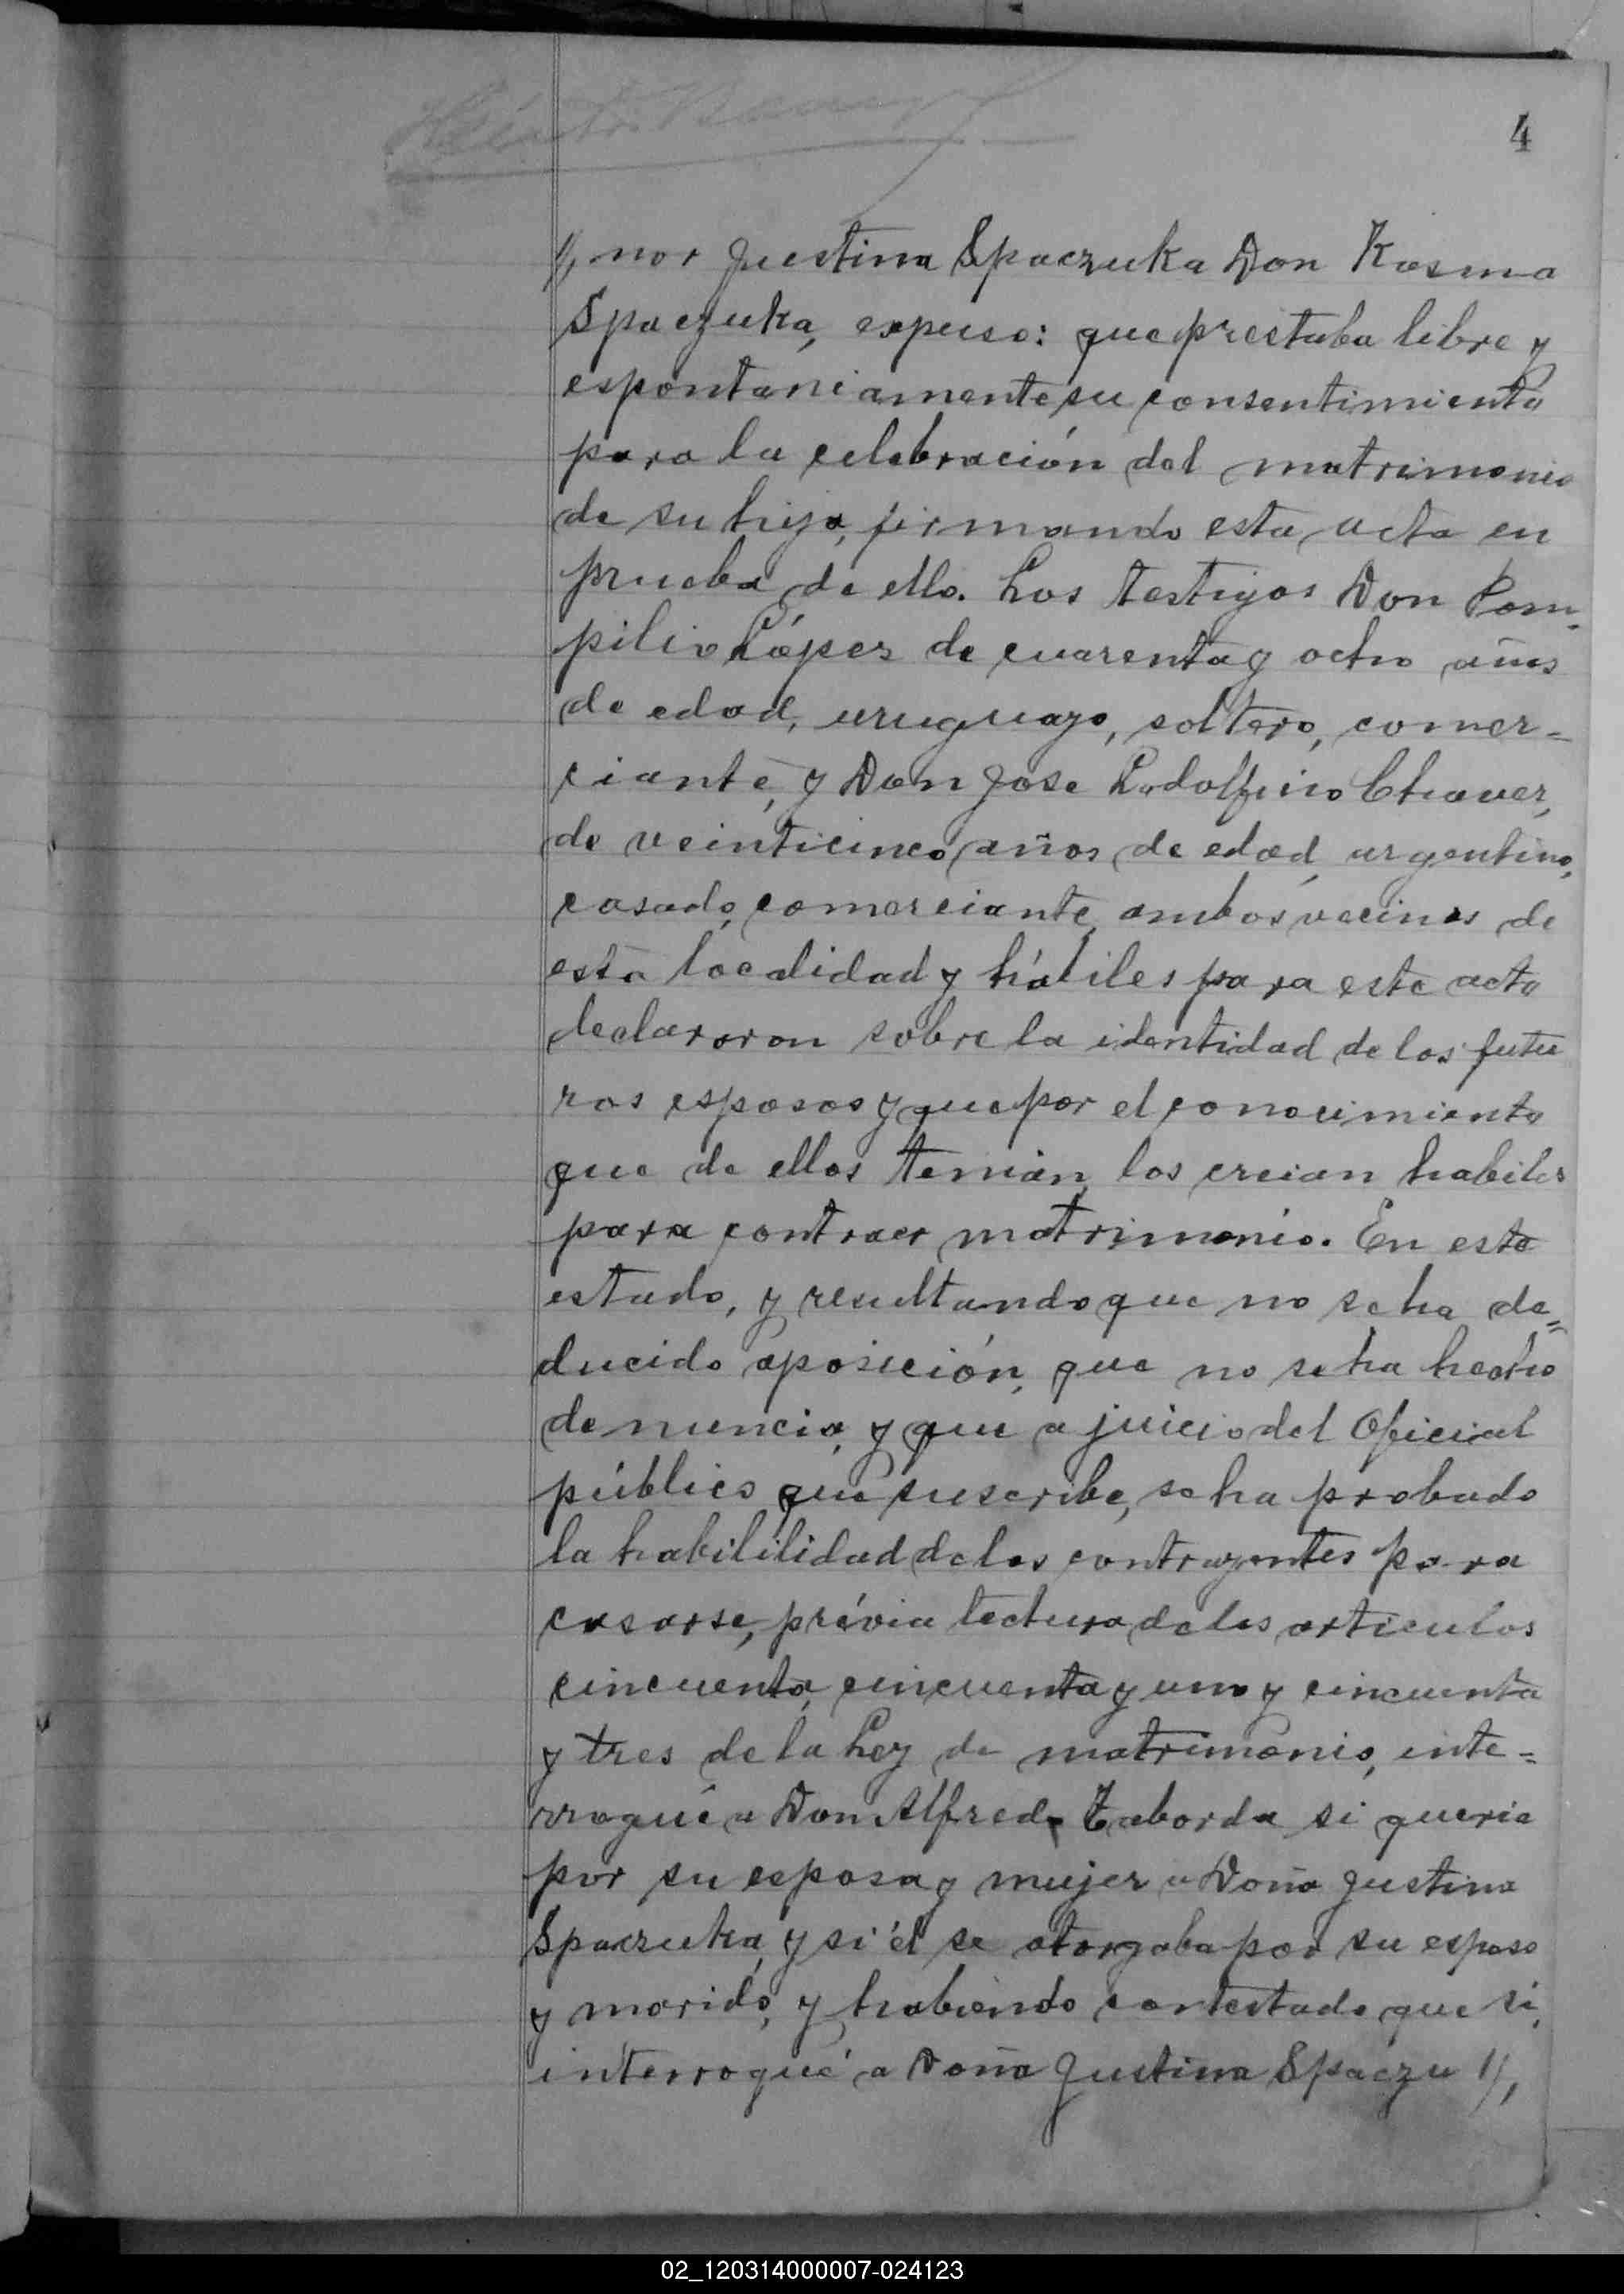 4
//, nor Justina Spaczuka Don Kosma
Spaczuka, expuso: que prestaba libre y
espontaniamente su consentimiento
para la celebración del matrimonio
de su hija, firmando esta acta en
prueba de ello. Los testigos Don Pom-
pilio López de cuarenta y ocho años
de edad, uruguayo, soltero, comer-
ciante, y Don Jose Lodolfino Chaver,
de veinticinco años de edad, argentino,
casado, comerciante, ambos vecinos de
esta localidad y hábiles para este acto
declararon sobre la identidad de los futu
ros esposos y que por el conocimiento
que de ellos tenian, los creian habiles
para contraer matrimonio. En este
estado, y resultando que no se ha de=
ducido oposición, que no se ha hecho
denuncia, y que a juicio del Oficial
público que suscribe, se ha probado
la habililidad de los contrayentes para
casarse, prévia lectura de los articulos
cincuenta, cincuenta y uno y cincuenta
y tres de la Ley de matrimonio, inte=
rrogué a Don Alfredo Taborda si queria
por su esposa y mujer a Doña Justina
Spaczuka, y si él se otorgaba por su esposo
y marido, y habiendo contestado que si,
interrogué a Doña Justina Spaczu //,
02_120314000007-024123